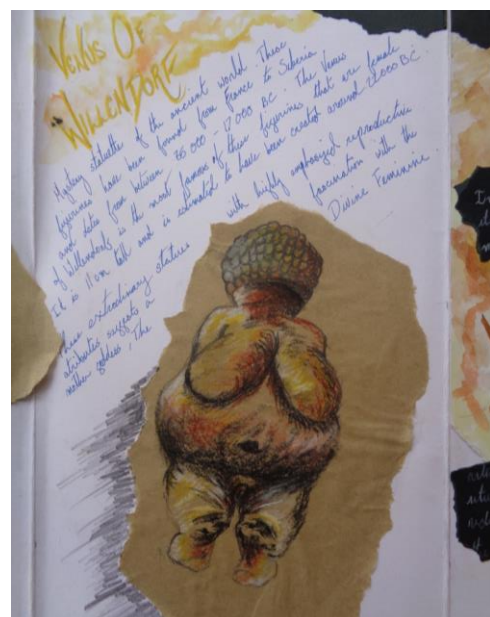 VENUS OF
WILLENDORF
Mystery statuettes of the ancient world. These
figerines have been found from France to Siberia
and dates from between 36 000 - 17 000 BC. The Venus
of Willendorf is the most famous of these figerines that are female
It is 11cm tall and is estimated to have been created around 27 000 BC.
these extrodinary statues with highly emphasized reproductive
atributes suggests a fascination with the
mother goddess, The Divine Feminine.